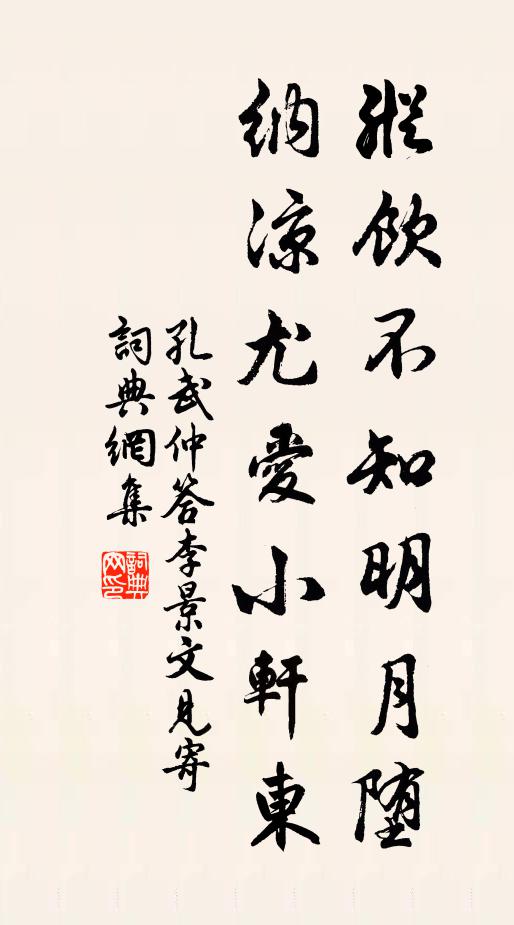 縱飲不知明月墮
納涼尤愛小軒東
孔武仲答李景文見寄
詞典網集
詞典網印